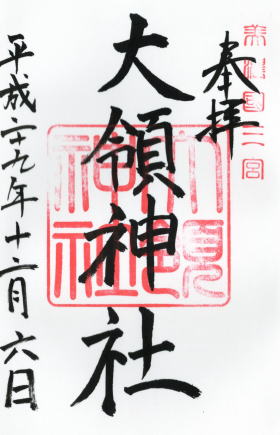 奉拝
美濃国二宮
大領神社
大領神社
平成二十九年十二月六日